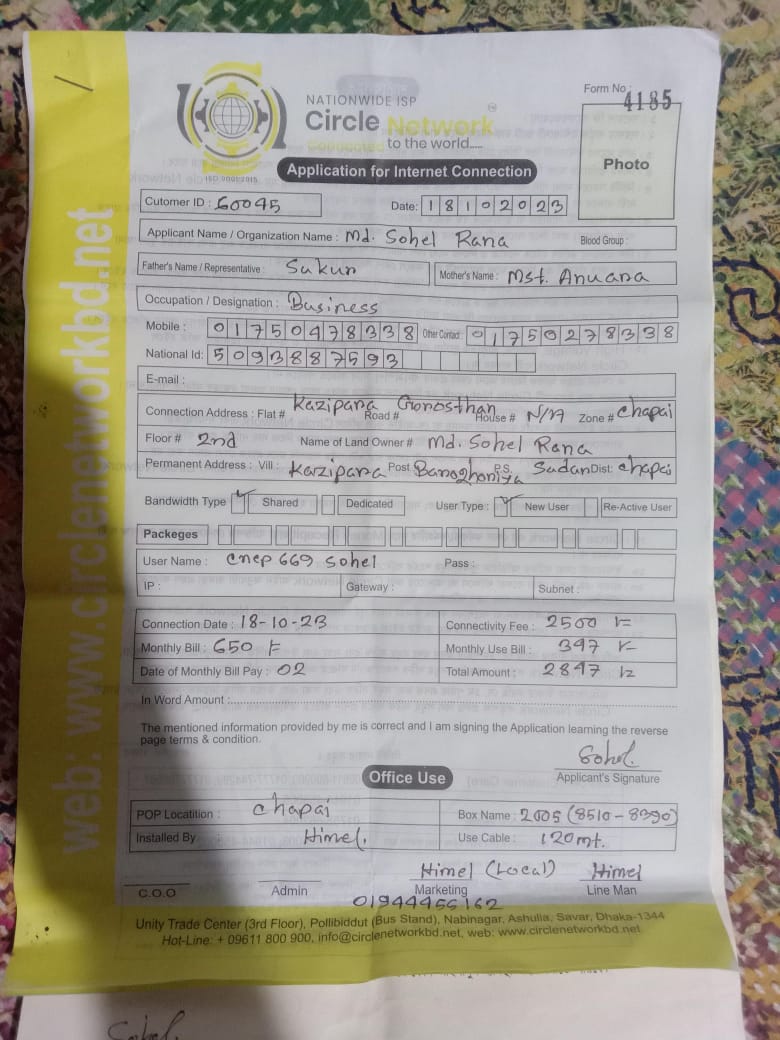 Form No : 4185
NATIONWIDE ISP
Circle Network
Connected to the world.....
ISO 9001:2015
Photo
Application for Internet Connection
Cutomer ID : 60045 Date: 18102023
Applicant Name / Organization Name : Md. Sohel Rana Blood Group :
Father's Name / Representative : Sukur Mother's Name : Mst. Anuara
Occupation / Designation : Business
Mobile : 01750478338 Other Contact : 01750278338
National Id: 5093887593
E-mail :
Connection Address : Flat # Kazipara Road # Gorosthan House # N/A Zone # chapai
Floor # 2nd Name of Land Owner # Md. Sohel Rana
Permanent Address : Vill : Kazipara Post P.S. Sadar Dist: chapai
Bandwidth Type Shared Dedicated User Type : New User Re-Active User
Packeges
User Name : cnep 669 sohel Pass :
IP : Gateway : Subnet :
Connection Date : 18-10-23 Connectivity Fee : 2500
Monthly Bill : 650 Monthly Use Bill : 347
Date of Monthly Bill Pay : 02 Total Amount : 2847
In Word Amount :
The mentioned information provided by me is correct and I am signing the Application learning the reverse
page terms & condition.
Sohel.
Applicant's Signature
Office Use
POP Locatition : chapai Box Name : 2005 (8510-8390)
Installed By Himel. Use Cable : 120mt.
Himel (Local) Himel
C.O.O Admin Marketing Line Man
01944455162
Unity Trade Center (3rd Floor), Pollibiddut (Bus Stand), Nabinagar, Ashulia, Savar, Dhaka-1344
Hot-Line: + 09611 800 900, info@circlenetworkbd.net, web: www.circlenetworkbd.net
web: www.circlenetworkbd.net
Sohel.